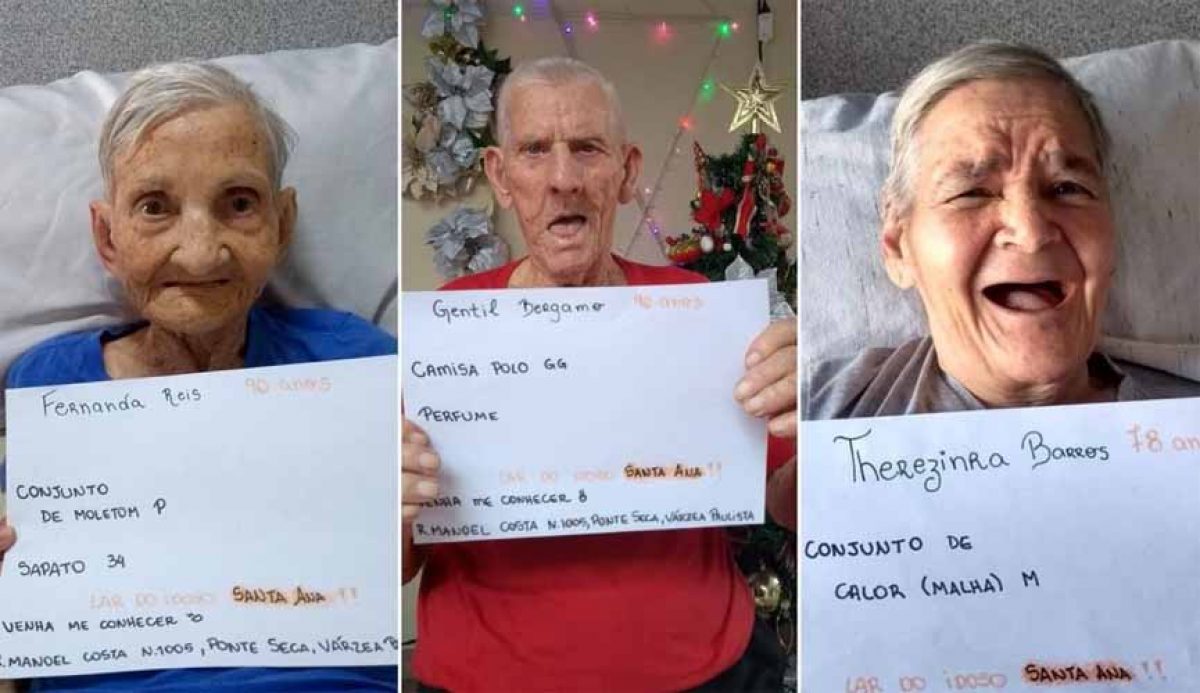 Fernanda Reis 90 anos
CONJUNTO
DE MOLETOM P
SAPATO 34
LAR DO IDOSO SANTA ANA !!
VENHA ME CONHECER
R. MANOEL COSTA N.1005, PONTE SECA, VÁRZEA P
Gentil Bergamo 90 anos
CAMISA POLO GG
PERFUME
LAR DO IDOSO SANTA ANA !!
VENHA ME CONHECER
R. MANOEL COSTA N.1005, PONTE SECA, VÁRZEA PAULISTA
Therezinha Barros 78 an
CONJUNTO DE
CALOR (MALHA) M
LAR DO IDOSO SANTA ANA !!